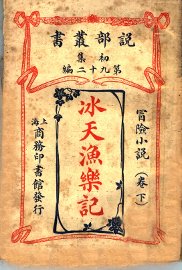 説部叢書
初集
第九十二編
冒險小説
(卷下)
冰天漁樂記
上海
商務印書館發行